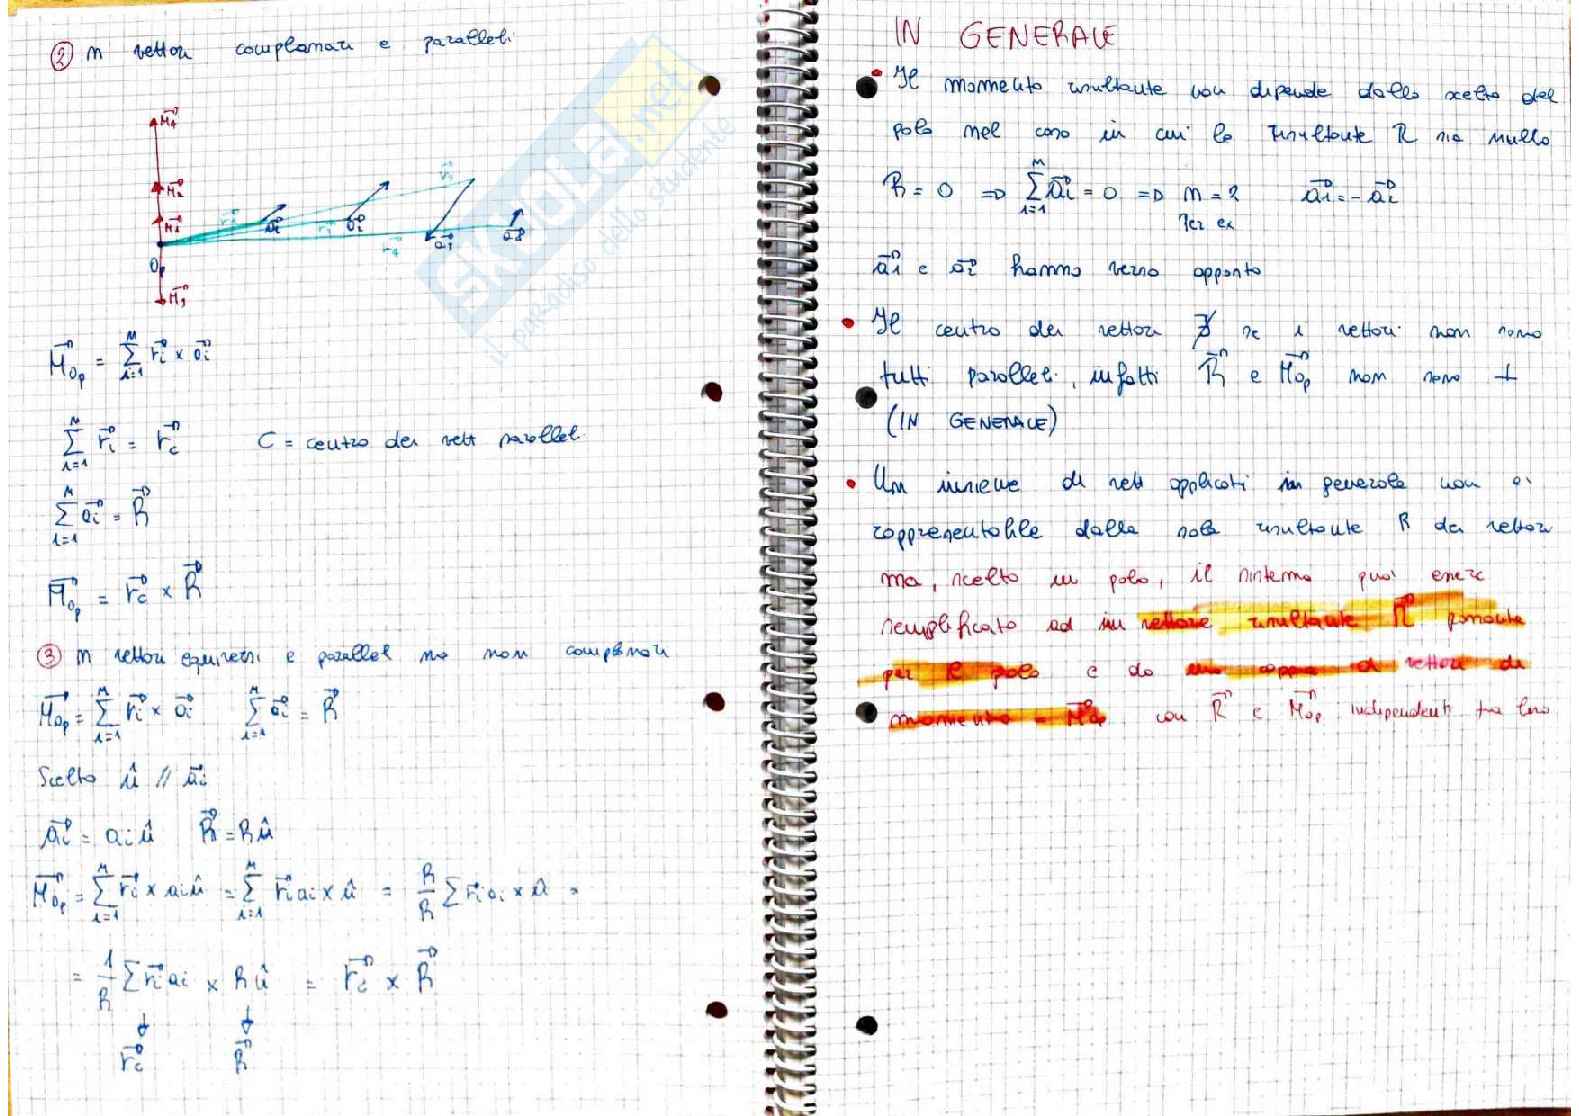 ② n vettori complanari e paralleli
M₄
M₂
M₁
r₁
a₁
a₂
r₃
r₄
a₃
a₄
Oₚ
M₃
M⃗ₒₚ = Σᵢ₌₁ᴺ r⃗ᵢ × a⃗ᵢ
Σᵢ₌₁ᴺ r⃗ᵢ = r⃗c C = centro dei vett paralleli
Σᵢ₌₁ᴺ a⃗ᵢ = R⃗
M⃗ₒₚ = r⃗c × R⃗
③ n vettori equiversi e paralleli ma non complanari
M⃗ₒₚ = Σᵢ₌₁ᴺ r⃗ᵢ × a⃗ᵢ Σᵢ₌₁ᴺ a⃗ᵢ = R⃗
Scelto û // a⃗ᵢ
a⃗ᵢ = aᵢû R⃗ = Rû
M⃗ₒₚ = Σᵢ₌₁ᴺ r⃗ᵢ × aᵢû = Σᵢ₌₁ᴺ r⃗ᵢaᵢ × û = R/R Σ rᵢaᵢ × û =
= 1/R Σ r⃗ᵢaᵢ × Rû = r⃗c × R⃗
↓ ↓
r⃗c R⃗
IN GENERALE
• Il momento risultante non dipende dalla scelta del
polo nel caso in cui la risultante R sia nulla
R = 0 ⇒ Σᵢ₌₁ᴺ a⃗ᵢ = 0 ⇒ n = 2 a⃗₁ = -a⃗₂
per es
a⃗₁ e a⃗₂ hanno verso opposto
• Il centro dei vettori ∄ se i vettori non sono
tutti paralleli, infatti R⃗ e M⃗ₒₚ non sono ⊥
(IN GENERALE)
• Un insieme di vett applicati in generale non è
rappresentabile dalla sola risultante R dei vettori
ma, scelto un polo, il sistema può essere
semplificato ad un vettore risultante R⃗ passante
per il polo e da una coppia di vettori di
momento = M⃗ₒₚ con R⃗ e M⃗ₒₚ indipendenti tra loro
SKUOLA.net
il paradiso dello studente